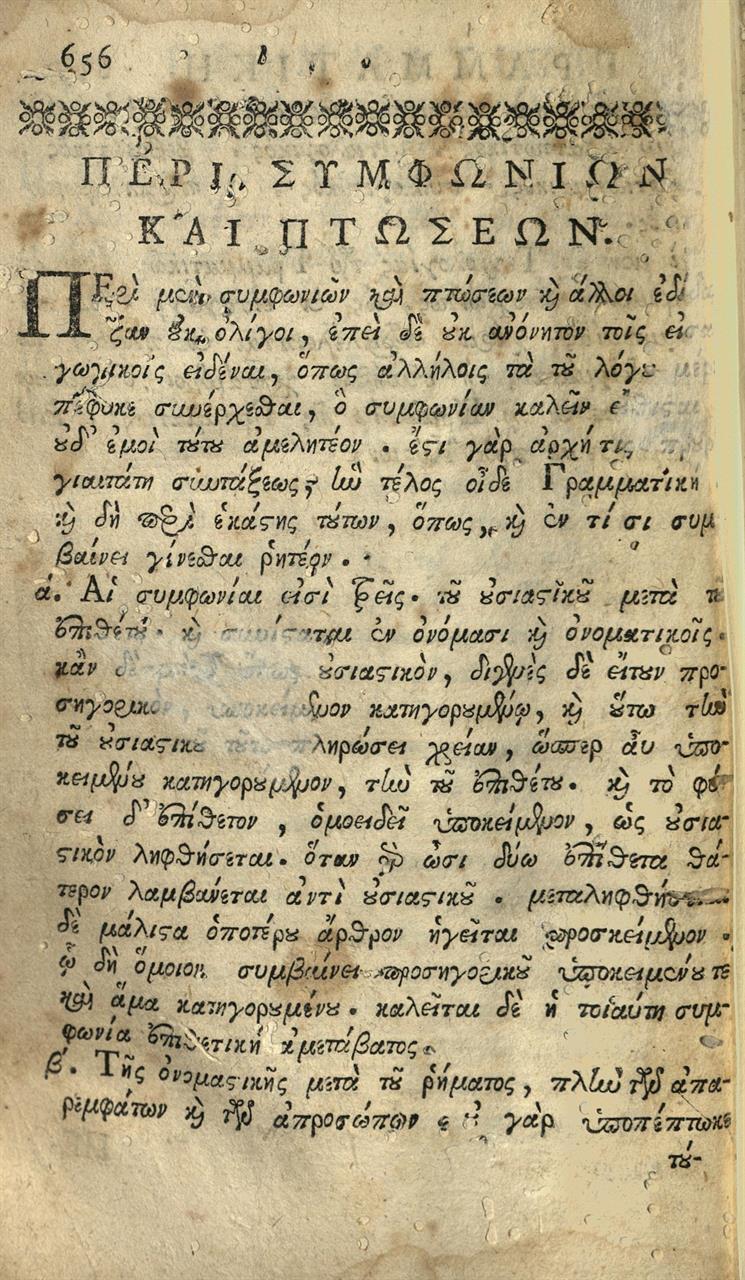 656
ΠΕΡΙ ΣΥΜΦΩΝΙΩΝ
ΚΑΙ ΠΤΩΣΕΩΝ.
ΠΕρὶ μὲν συμφωνιῶν καὶ πτώσεων καὶ ἄλλοι
οὐκ ὀλίγοι, ἐπεὶ δὲ οὐκ ἀνόνητον τοῖς
γωγικοῖς εἰδέναι, ὅπως ἀλλήλοις τὰ τοῦ λόγου
πέφυκε συνέρχεσθαι, ὃ συμφωνίαν καλεῖν
οὐδ' ἐμοὶ τούτου ἀμελητέον. ἔστι γὰρ ἀρχή τις
συντάξεως, ἣν τέλος οἶδε Γραμματικὴ
καὶ δὴ περὶ ἑκάστης τούτων, ὅπως, καὶ ἐν τίσι συμ
βαίνει γίνεσθαι ῥητέον.
ά. Αἱ συμφωνίαι εἰσὶ τρεῖς. τοῦ οὐσιαστικοῦ μετὰ τοῦ
ἐπιθέτου. καὶ ἐν ὀνόμασι καὶ ὀνοματικοῖς.
κἂν οὐσιαστικὸν, διγενὲς δὲ εἴτουν προ-
σηγορικὸν κατηγορουμένῳ, καὶ οὕτω τὴν
τοῦ οὐσιαστικοῦ πληρώσει χρείαν, ὥσπερ αὖ ὑπο-
κειμένου κατηγορουμένον, τὴν τοῦ ἐπιθέτου. καὶ τὸ φύ-
σει δ' ἐπίθετον, ὁμοειδεῖ ὑποκείμενον, ὡς οὐσια-
στικὸν ληφθήσεται. ὅταν γὰρ ὦσι δύω ἐπίθετα θά-
τερον λαμβάνεται ἀντὶ οὐσιαστικοῦ.
δὲ μάλιστα ὁποτέρου ἄρθρον ἡγεῖται προσκείμενον.
ᾧ δὴ ὅμοιον συμβαίνει προσηγορικοῦ ὑποκειμένου τε
καὶ ἅμα κατηγορουμένου. καλεῖται δὲ ἡ τοιαύτη συμ-
φωνία ἐπιθετικὴ ἀμετάβατος.
β'. Τῆς ὀνομαστικῆς μετὰ τοῦ ῥήματος, πλὴν τῶν ἀπα-
ρεμφάτων καὶ τῶν ἀπροσώπων γὰρ ὑποπέπτωκε
τού-